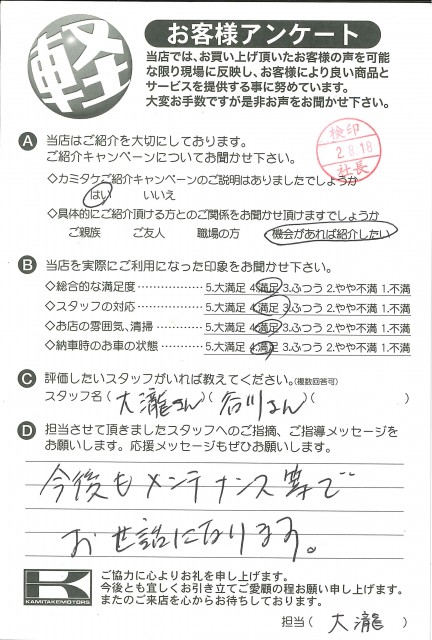 軽
お客様アンケート
当店では、お買い上げ頂いたお客様の声を可能
な限り現場に反映し、お客様により良い商品と
サービスを提供する事に努めています。
大変お手数ですが是非お声をお聞かせ下さい。
検印
2.8.18
社長
A 当店はご紹介を大切にしております。
ご紹介キャンペーンについてお聞かせ下さい。
◇カミタケご紹介キャンペーンのご説明はありましたでしょうか
はい いいえ
◇具体的にご紹介頂ける方とのご関係をお聞かせ頂けますでしょうか
ご親族 ご友人 職場の方 機会があれば紹介したい
B 当店を実際にご利用になった印象をお聞かせ下さい。
◇総合的な満足度 5.大満足 4.満足 3.ふつう 2.やや不満 1.不満
◇スタッフの対応 5.大満足 4.満足 3.ふつう 2.やや不満 1.不満
◇お店の雰囲気、清掃 5.大満足 4.満足 3.ふつう 2.やや不満 1.不満
◇納車時のお車の状態 5.大満足 4.満足 3.ふつう 2.やや不満 1.不満
C 評価したいスタッフがいれば教えてください。(複数回答可)
スタッフ名(大瀧さん)(石川さん)( )
D 担当させて頂きましたスタッフへのご指摘、ご指導メッセージを
お願いします。応援メッセージもぜひお願いします。
今後もメンテナンス等で
お世話になります。
K
KAMITAKEMOTORS
ご協力に心よりお礼を申し上げます。
今後とも宜しくお引き立てご愛顧の程お願い申し上げます。
またのご来店を心からお待ちしております。
担当(大瀧)